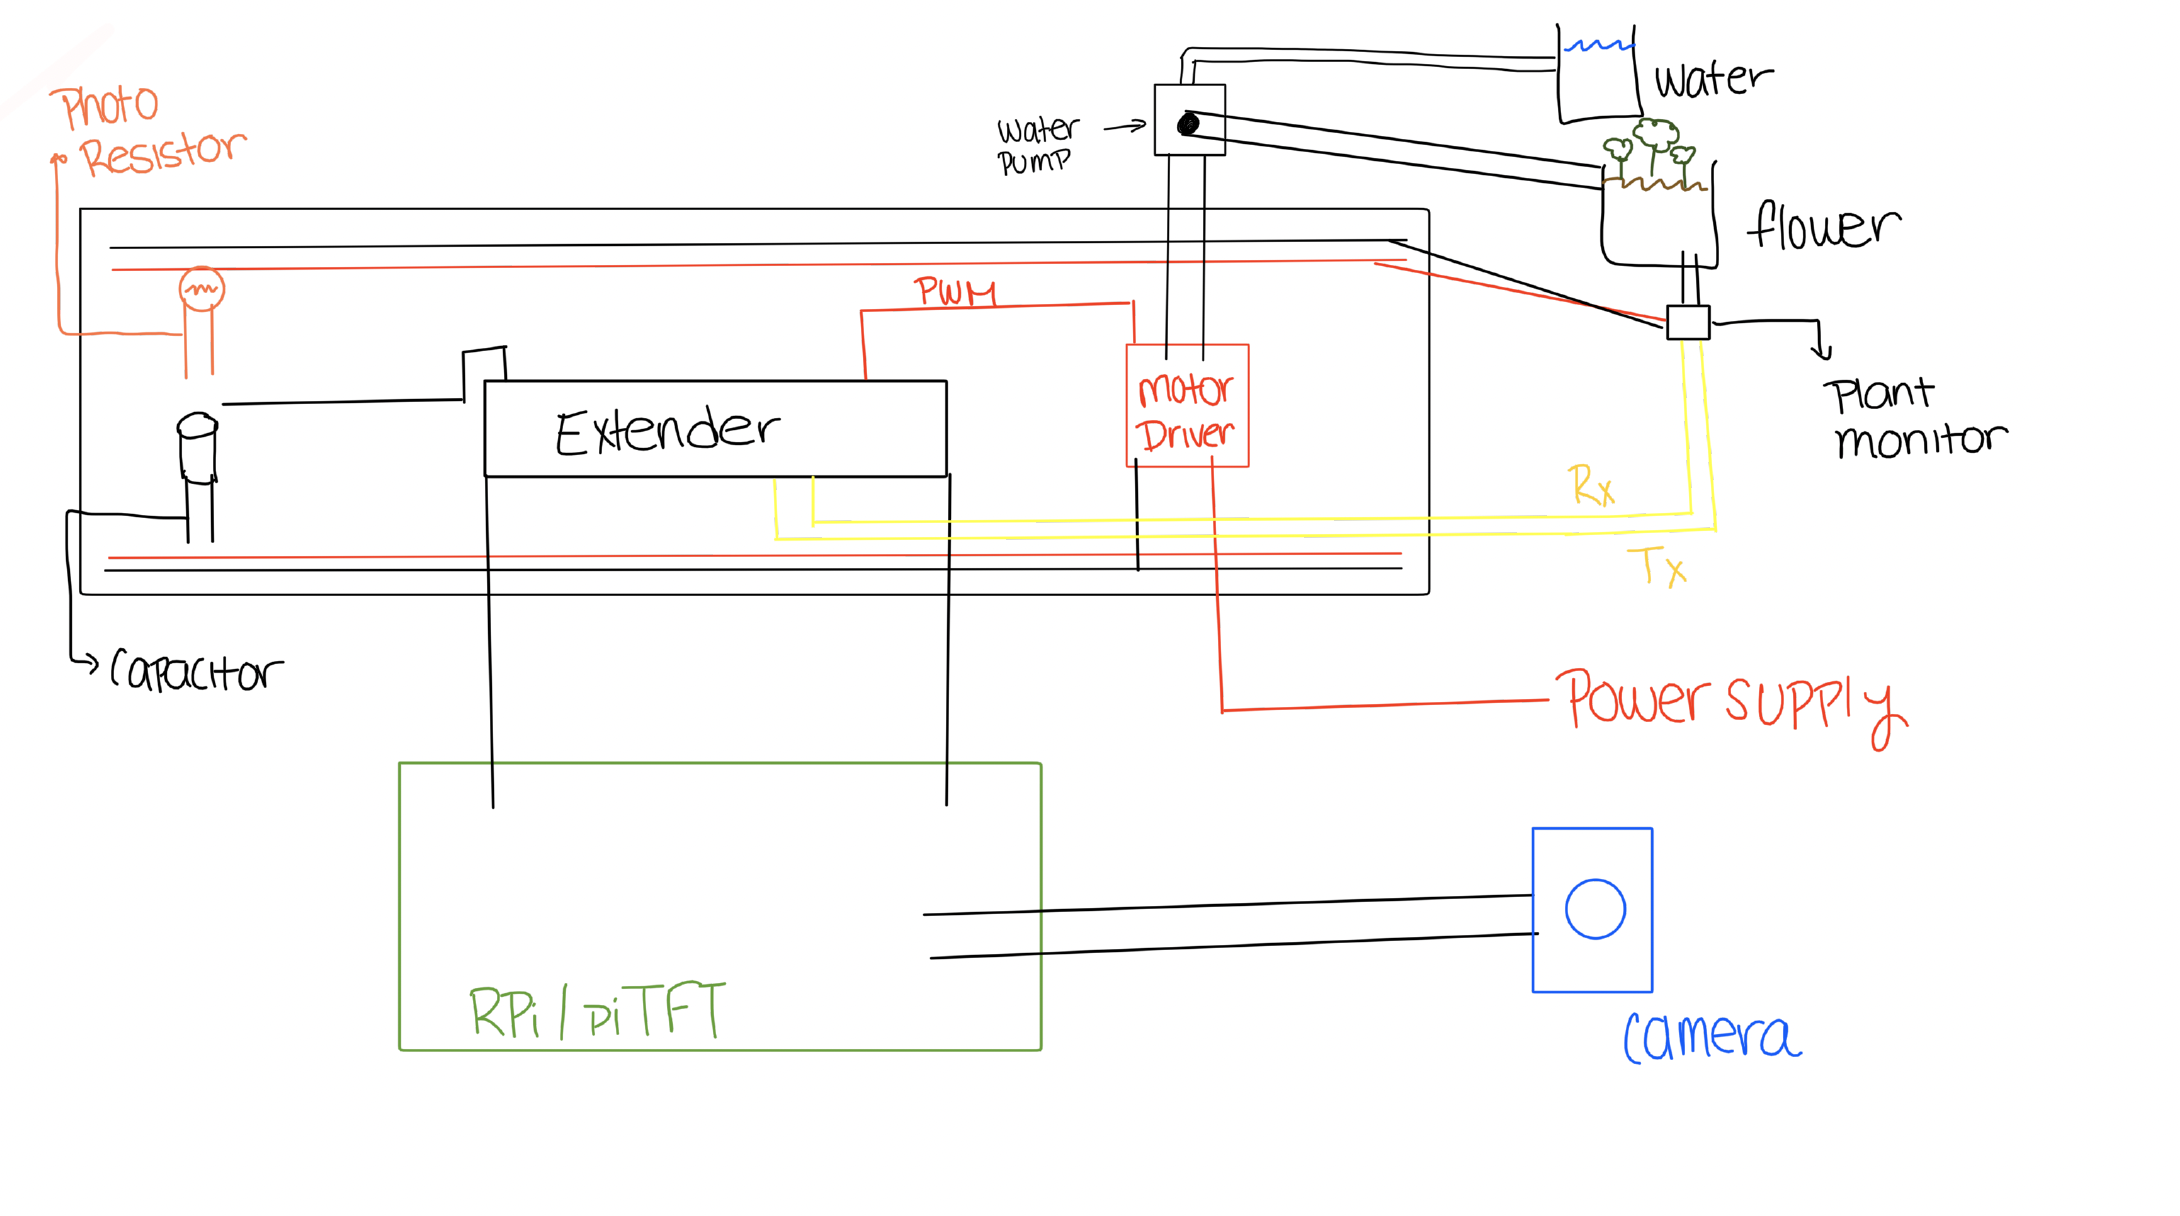 Photo
Resistor
water
water
PUMP
flower
PWM
Extender
Motor
Driver
Plant
monitor
Rx
Tx
Capacitor
Power SUPPLy
RPi / piTFT
Camera